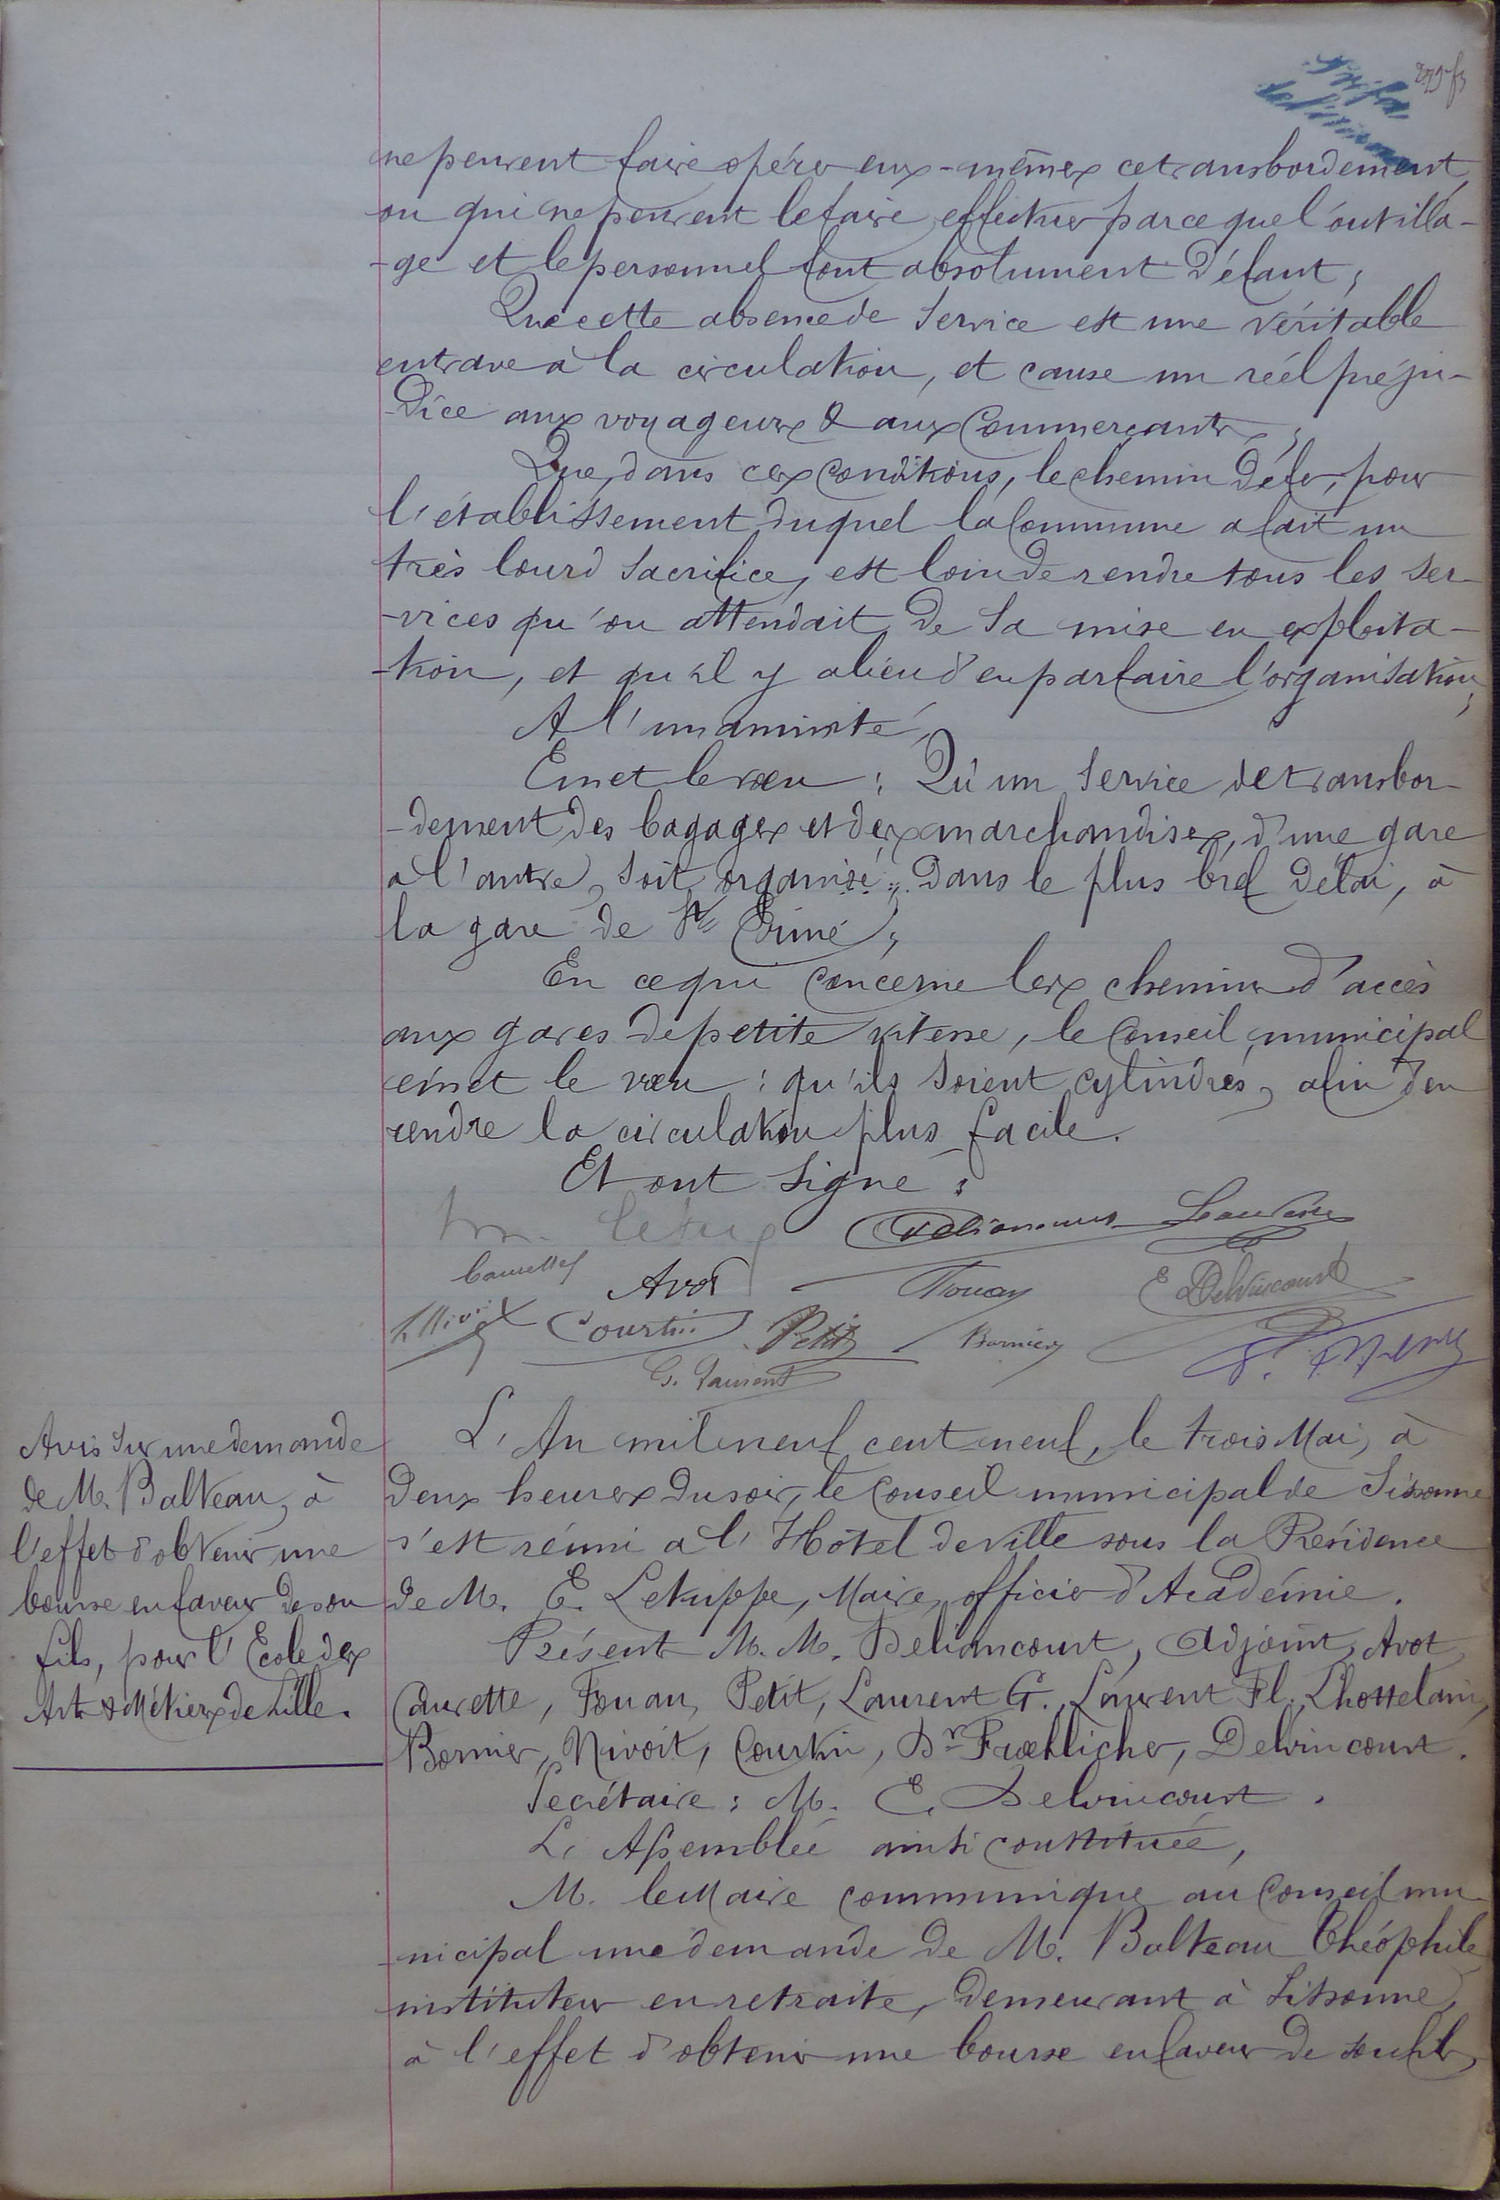 ne peuvent faire opérer eux-mêmes ce transbordement,
ou qui ne peuvent le faire effectuer parce que l'outilla-
-ge et le personnel font absolument défaut ;
Que cette absence de service est une véritable
entrave à la circulation, et cause un réel préju-
-dice aux voyageurs & aux Commerçants ;
Que, dans ces Conditions, le chemin de fer, pour
l'établissement duquel la Commune a fait un
très lourd sacrifice, est loin de rendre tous les ser-
-vices qu'on attendait de sa mise en exploita-
-tion, et qu'il y a lieu d'en parfaire l'organisation ;
A l'unanimité,
Emet le vœu : Qu'un service de transbor-
-dement des bagages et des marchandises, d'une gare
à l'autre, soit organisé, dans le plus bref délai, à
la gare de St Erme ;
En ce qui concerne les chemins d'accès
aux gares de petite vitesse, le Conseil municipal
émet le vœu : qu'ils soient cylindrés, afin d'en
rendre la circulation plus facile.
Et ont signé :
Deliancourt
Caurette Avot Fouan E Delvincourt
Nivoit Courtin Petit Bornier
G. Laurent
Avis sur une demande
de M. Balteau, à
l'effet d'obtenir une
bourse en faveur de son
fils, pour l'Ecole des
Arts & Métiers de Lille.
L'An mil neuf cent neuf, le trois Mai, à
deux heures du soir, le Conseil municipal de Sissonne
s'est réuni à l'Hôtel de ville sous la Présidence
de M. E. Letuppe, Maire, officier d'Académie.
Présent M. M. Deliancourt, Adjoint, Avot
Caurette, Fouan, Petit, Laurent G., Laurent Fl., Lhottelain,
Bornier, Nivoit, Courtin, Dr Froehlicher, Delvincourt.
Secrétaire : M. E. Delvincourt.
L'Assemblée ainsi constituée,
M. le Maire communique au Conseil mu-
-nicipal une demande de M. Balteau Théophile
instituteur en retraite, demeurant à Sissonne,
à l'effet d'obtenir une bourse en faveur de son fils,